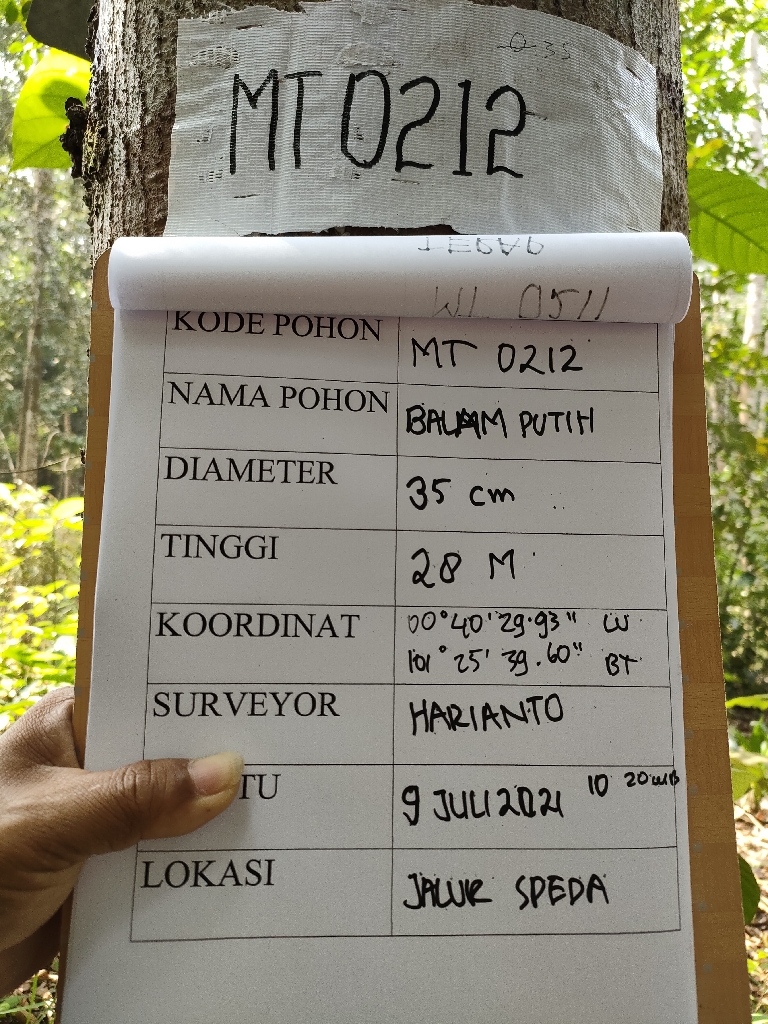 0 35
MT 0212
TERAP
WL 0511
KODE POHON MT 0212
NAMA POHON BALAM PUTIH
DIAMETER 35 cm
TINGGI 28 M
KOORDINAT 00°40'29.93" LU
101°25'39.60" BT
SURVEYOR HARIANTO
TU 9 JULI 2021 10 20 WIB
LOKASI JALUR SPEDA